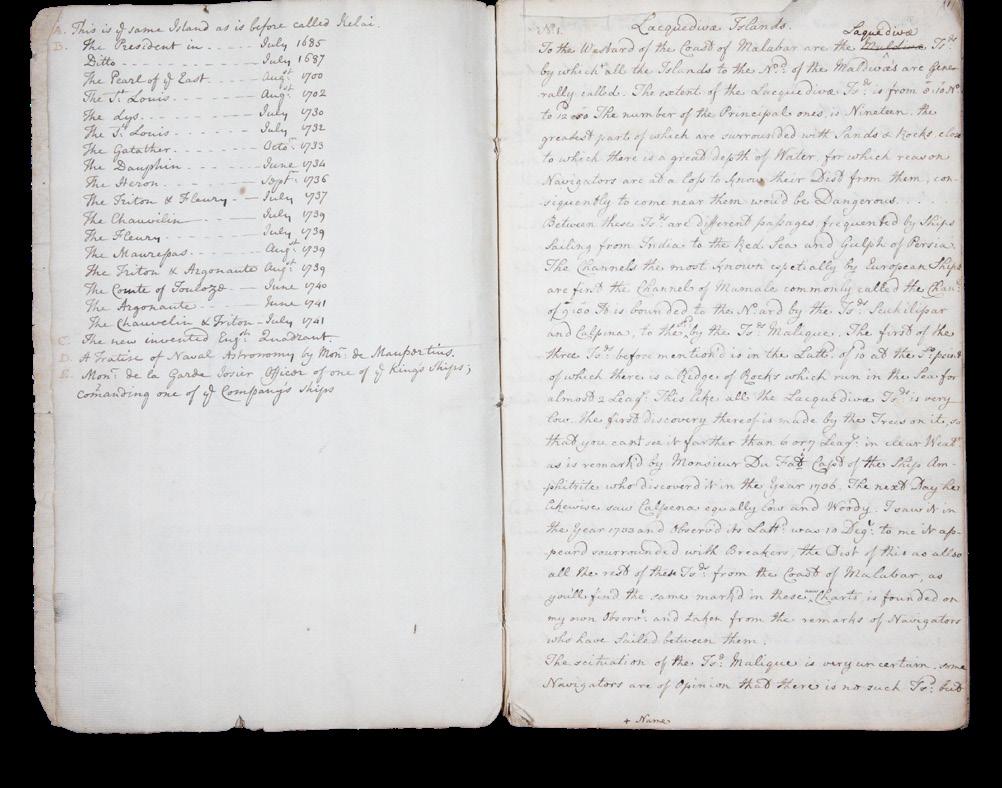 A. This is ye same Island as is before called Kelai.
B. The President in . . . . . July 1685
Ditto - - - - - - - - - - - July 1687
The Pearl of ye East - - - - Augst 1700
The St Louis - - - - - - - Augst 1702
The Lys - - - - - - - - - - July 1730
The St Louis - - - - - - - July 1732
The Galather - - - - - - - Octo: 1733
The Dauphin - - - - - - - June 1734
The Heron - - - - - - - - Sept: 1736
The Triton & Fleury - - July 1737
The Chauvilin - - - - - - July 1739
The Fleury - - - - - - - - July 1739
The Maurepas - - - - - - Augst 1739
The Triton & Argonaute Augst 1739
The Comte of Toulozo - - June 1740
The Argonaute - - - - - - June 1741
The Chauvelin & Triton - July 1741
C. The new invented Engh Quadrant.
D. A Tratise of Naval Astronomy by Monr de Maupertius.
E. Monr de la Garde Josier Officer of one of ye Kings Ships;
comanding one of ye Company's Ships
No 1. Lacquediva Islands.
Laquediva
To the Westard of the Coast of Malabar are the Maldiva Isds
by which all the Islands to the Nod of the Maldiva's are gene-
rally called. The extent of the Lacquediva Isds is from
to 12 The number of the Principal ones, is Nineteen. the
greatest part of which are surrounded with Sands & Rocks, close
to which there is a great depth of Water, for which reason
Navigators are at a loss to know their Dist from them, con-
siquently to come near them would be Dangerous. . . .
Between these Isds are different passages frequented by Ships
Sailing from India to the Red Sea and Gulph of Persia.
The Channels the most known espetially by European Ships
are first the Channel of Mamale commonly called the Chanl
of 9:00 It is bounded to the No:ard by the Isds Seuhilipar
and Calpina, to the So by the Isds Malique. The first of the
three Isds before mention'd is in the Latt: of 10 at the So point
of which there is a Ridge of Rocks which run in the Sea for
almost 2 Leags. This like all the Lacquediva Isds is very
low. the first discovery thereof is made by the Trees on it, so
that you cant see it farther than 6 or 7 Leags in clear Weatr
as is remark'd by Monsieur Du Fai Capt of the Ship Am-
phitrite who discover'd it in the Year 1706. The next Day he
likewise saw Calpena equally low and Woody. I saw it in
the Year 1733 and Observ'd its Latt: was 10 Degs. to me it ap-
peard sourrounded with Breakers, the Dist of this as allso
all the rest of these Isds from the Coast of Malabar, as
youll find the same mark'd in these Charts is founded on
my own Observs and taken from the remarks of Navigators
who have Sailed between them.
The scituation of the Isd Malique is very uncertain. some
Navigators are of Opinion that there is no such Isd: but
+ Name